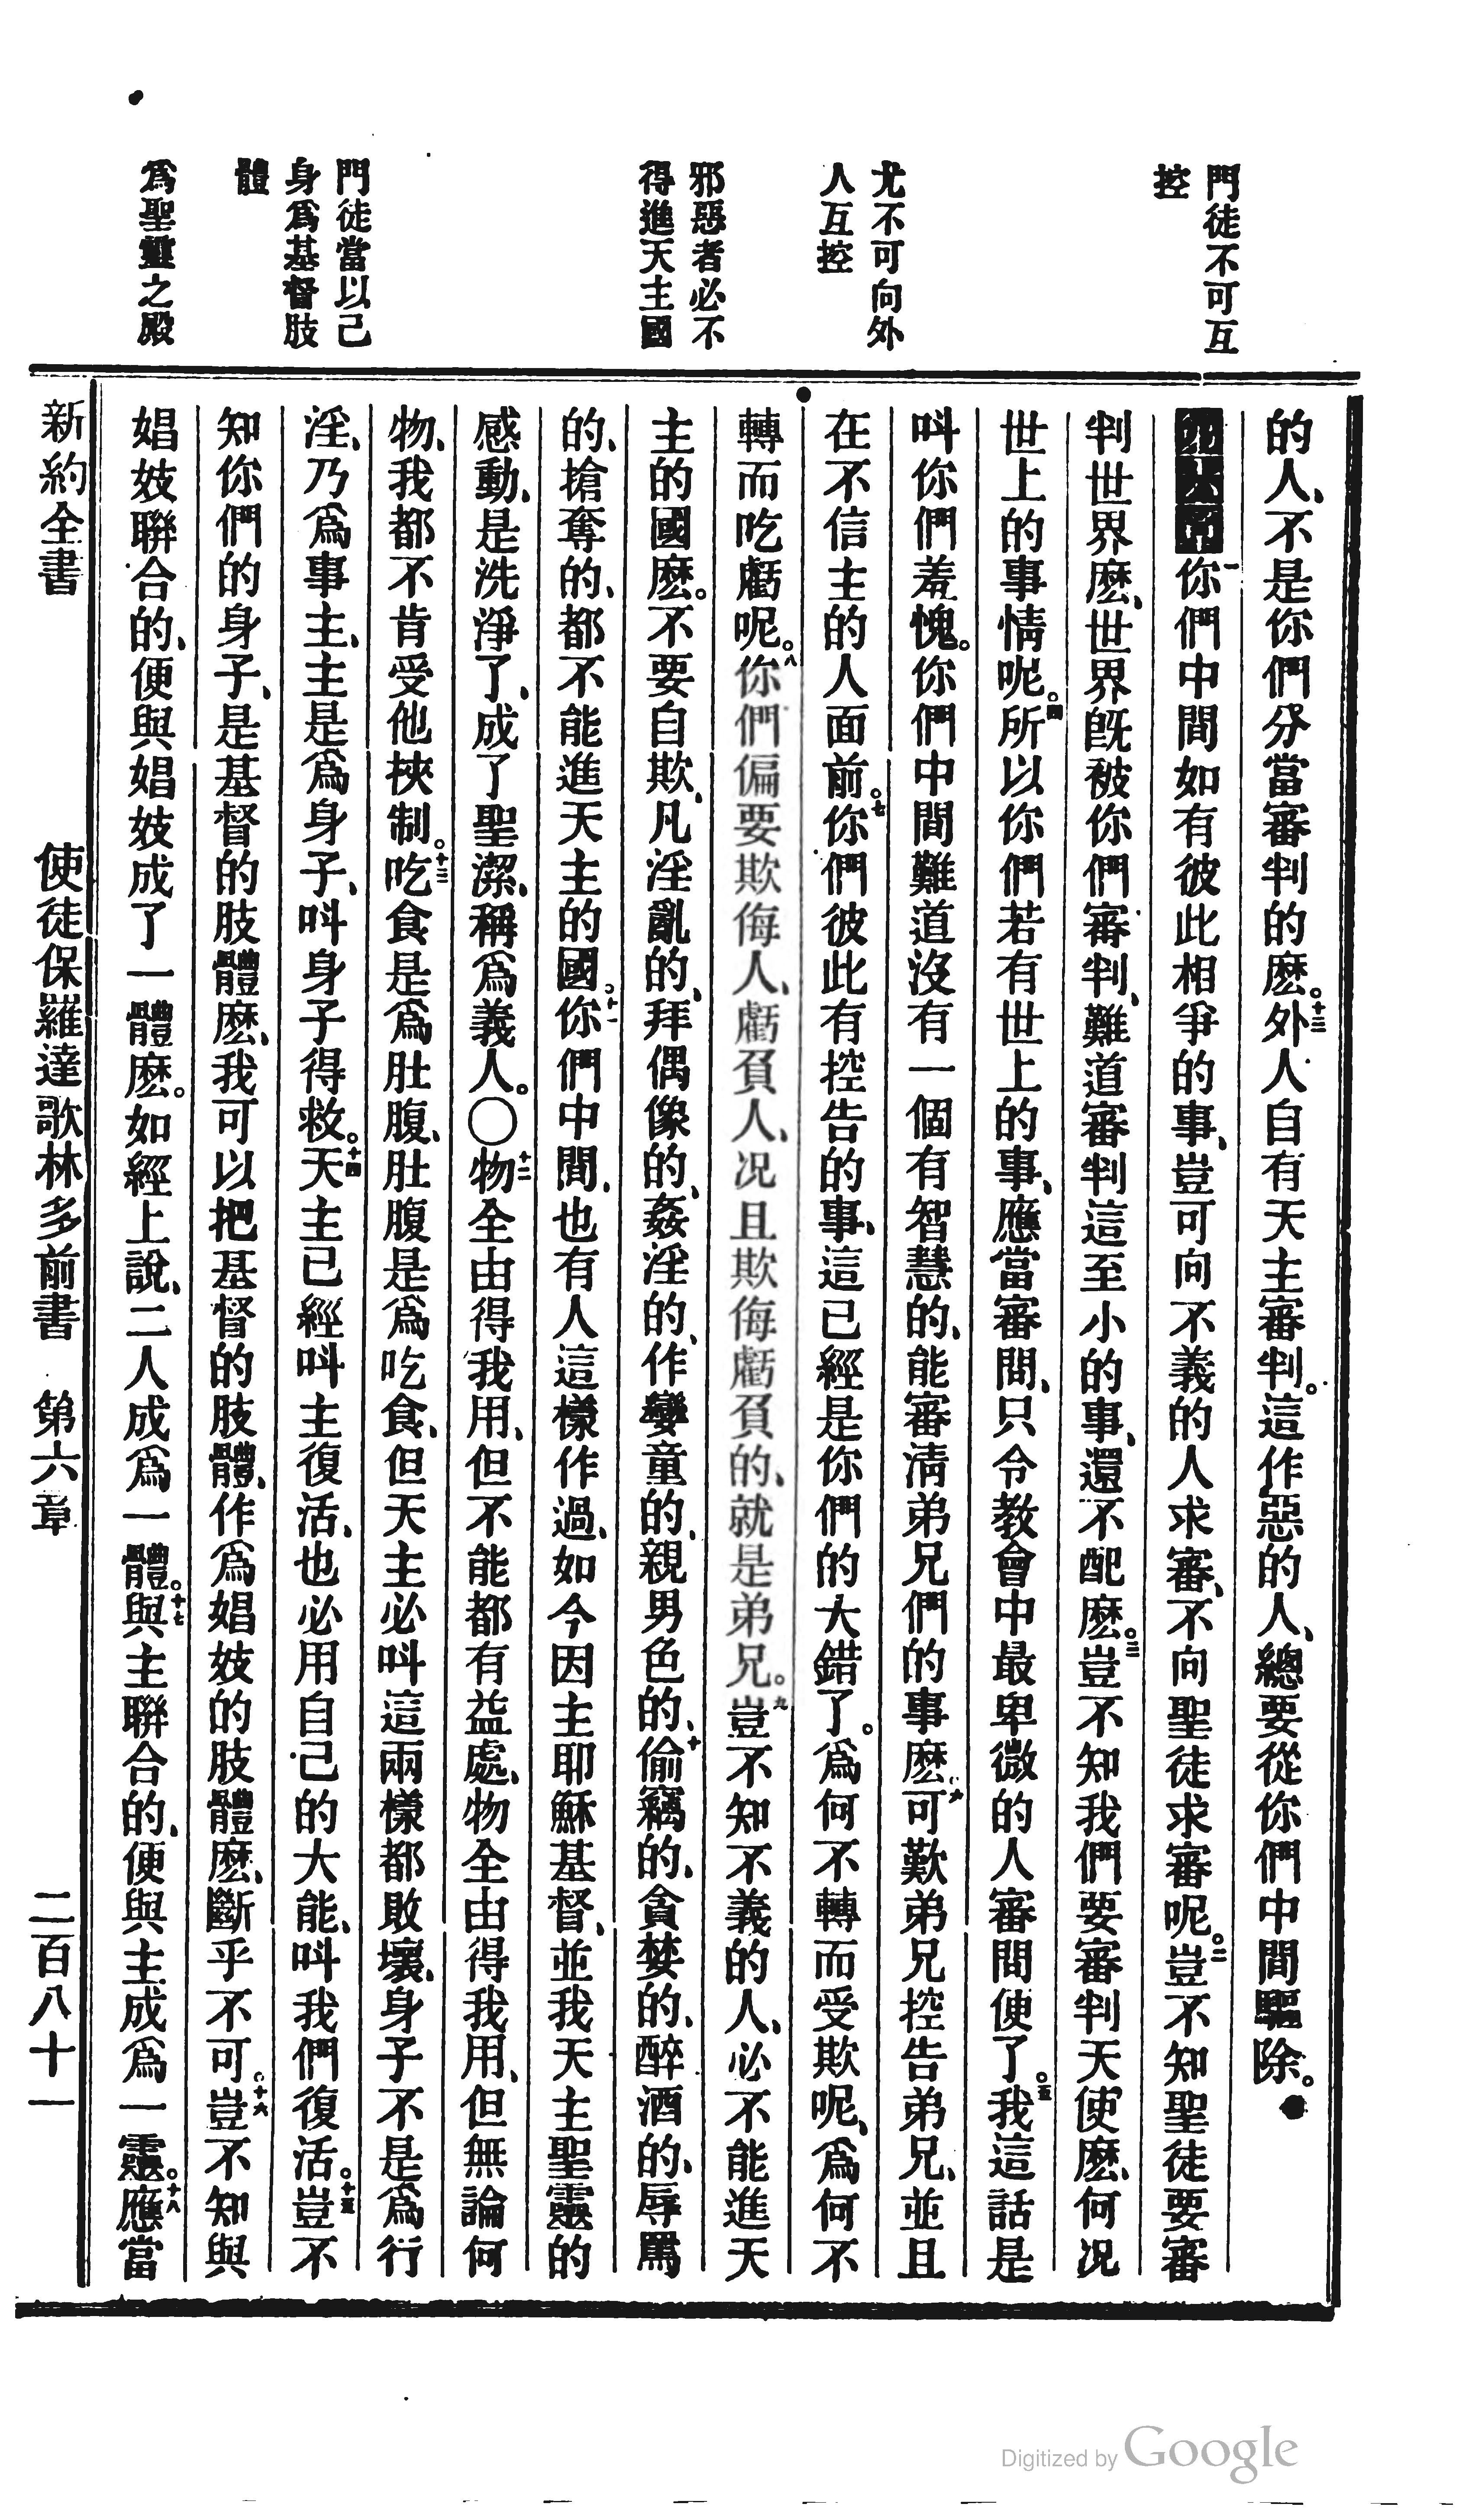 門徒不可互
控
尤不可向外
人互控
邪惡者必不
得進天主國
門徒當以己
身爲基督肢
體
爲聖靈之殿
的人、不是你們分當審判的麽。十三外人自有天主審判。這作惡的人、總要從你們中間驅除。
第六章一你們中間如有彼此相爭的事、豈可向不義的人求審、不向聖徒求審呢。二豈不知聖徒要審
判世界麽、世界旣被你們審判、難道審判這至小的事、還不配麽。三豈不知我們要審判天使麽、何况
世上的事情呢。四所以你們若有世上的事、應當審問、只令教會中最卑微的人審問便了。五我這話是
呌你們羞愧。你們中間難道沒有一個有智慧的、能審淸弟兄們的事麽。六可歎弟兄控告弟兄、並且
在不信主的人面前。七你們彼此有控告的事、這已經是你們的大錯了。爲何不轉而受欺呢、爲何不
轉而吃虧呢。八你們偏要欺侮人、虧負人、况且欺侮虧負的、就是弟兄。九豈不知不義的人、必不能進天
主的國麽。不要自欺、凡淫亂的、拜偶像的、姦淫的、作孌童的、親男色的、十偷竊的、貪婪的、醉酒的、辱駡
的、搶奪的、都不能進天主的國。十一你們中間、也有人這樣作過、如今因主耶穌基督、並我天主聖靈的
感動、是洗淨了、成了聖潔、稱爲義人。〇十二物全由得我用、但不能都有益處、物全由得我用、但無論何
物、我都不肯受他挾制。十三吃食是爲肚腹、肚腹是爲吃食、但天主必呌這兩樣都敗壞、身子不是爲行
淫、乃爲事主、主是爲身子、呌身子得救。十四天主已經呌主復活、也必用自己的大能、呌我們復活。十五豈不
知你們的身子、是基督的肢體麽、我可以把基督的肢體、作爲娼妓的肢體麽、斷乎不可。十六豈不知與
娼妓聯合的、便與娼妓成了一體麽。如經上說、二人成爲一體。十七與主聯合的、便與主成爲一靈。十八應當
新約全書 使徒保羅達歌林多前書 第六章 二百八十一
Digitized by Google